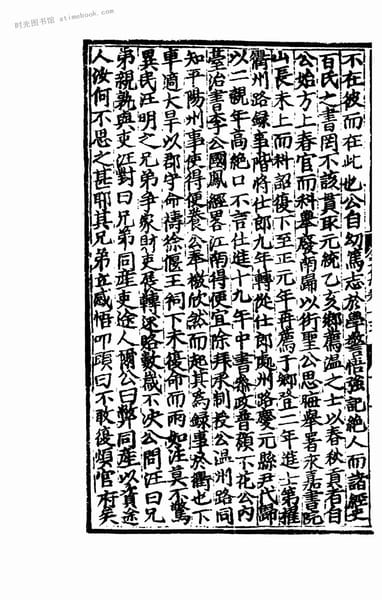 时光图书馆 atimebook.com
不在彼而在此也公自幼篤志於學警悟強記絕人而諸經史
百氏之書罔不該貫取元統乙亥鄉薦溫之士以春秋貢者自
公始方上春官而科舉廢南歸以衍聖公思晦舉署來嘉書院
山長未上而科詔復下至正元年再薦于鄉登二年進士第擢
衢州路錄事階將仕郎九年轉從仕郎處州路慶元縣尹代歸
以二親年高絕口不言仕進十九年中書參政普顏不花公內
臺治書李公國鳳經畧江南得便宜除拜承制授公溫州路同
知平陽州事使得便養公奉檄欣然而起其為錄事於衢也下
車適大旱以郡守命禱徐偃王祠下未復命而雨如注莫不驚
異民汪明之兄弟爭家財吏展轉迷賂數歲不決公問汪曰兄
弟親孰與吏汪對曰兄弟同產吏途人爾公曰弊同產以資途
人汝何不思之甚耶其兄弟立感悟叩頭曰不敢復煩官府矣